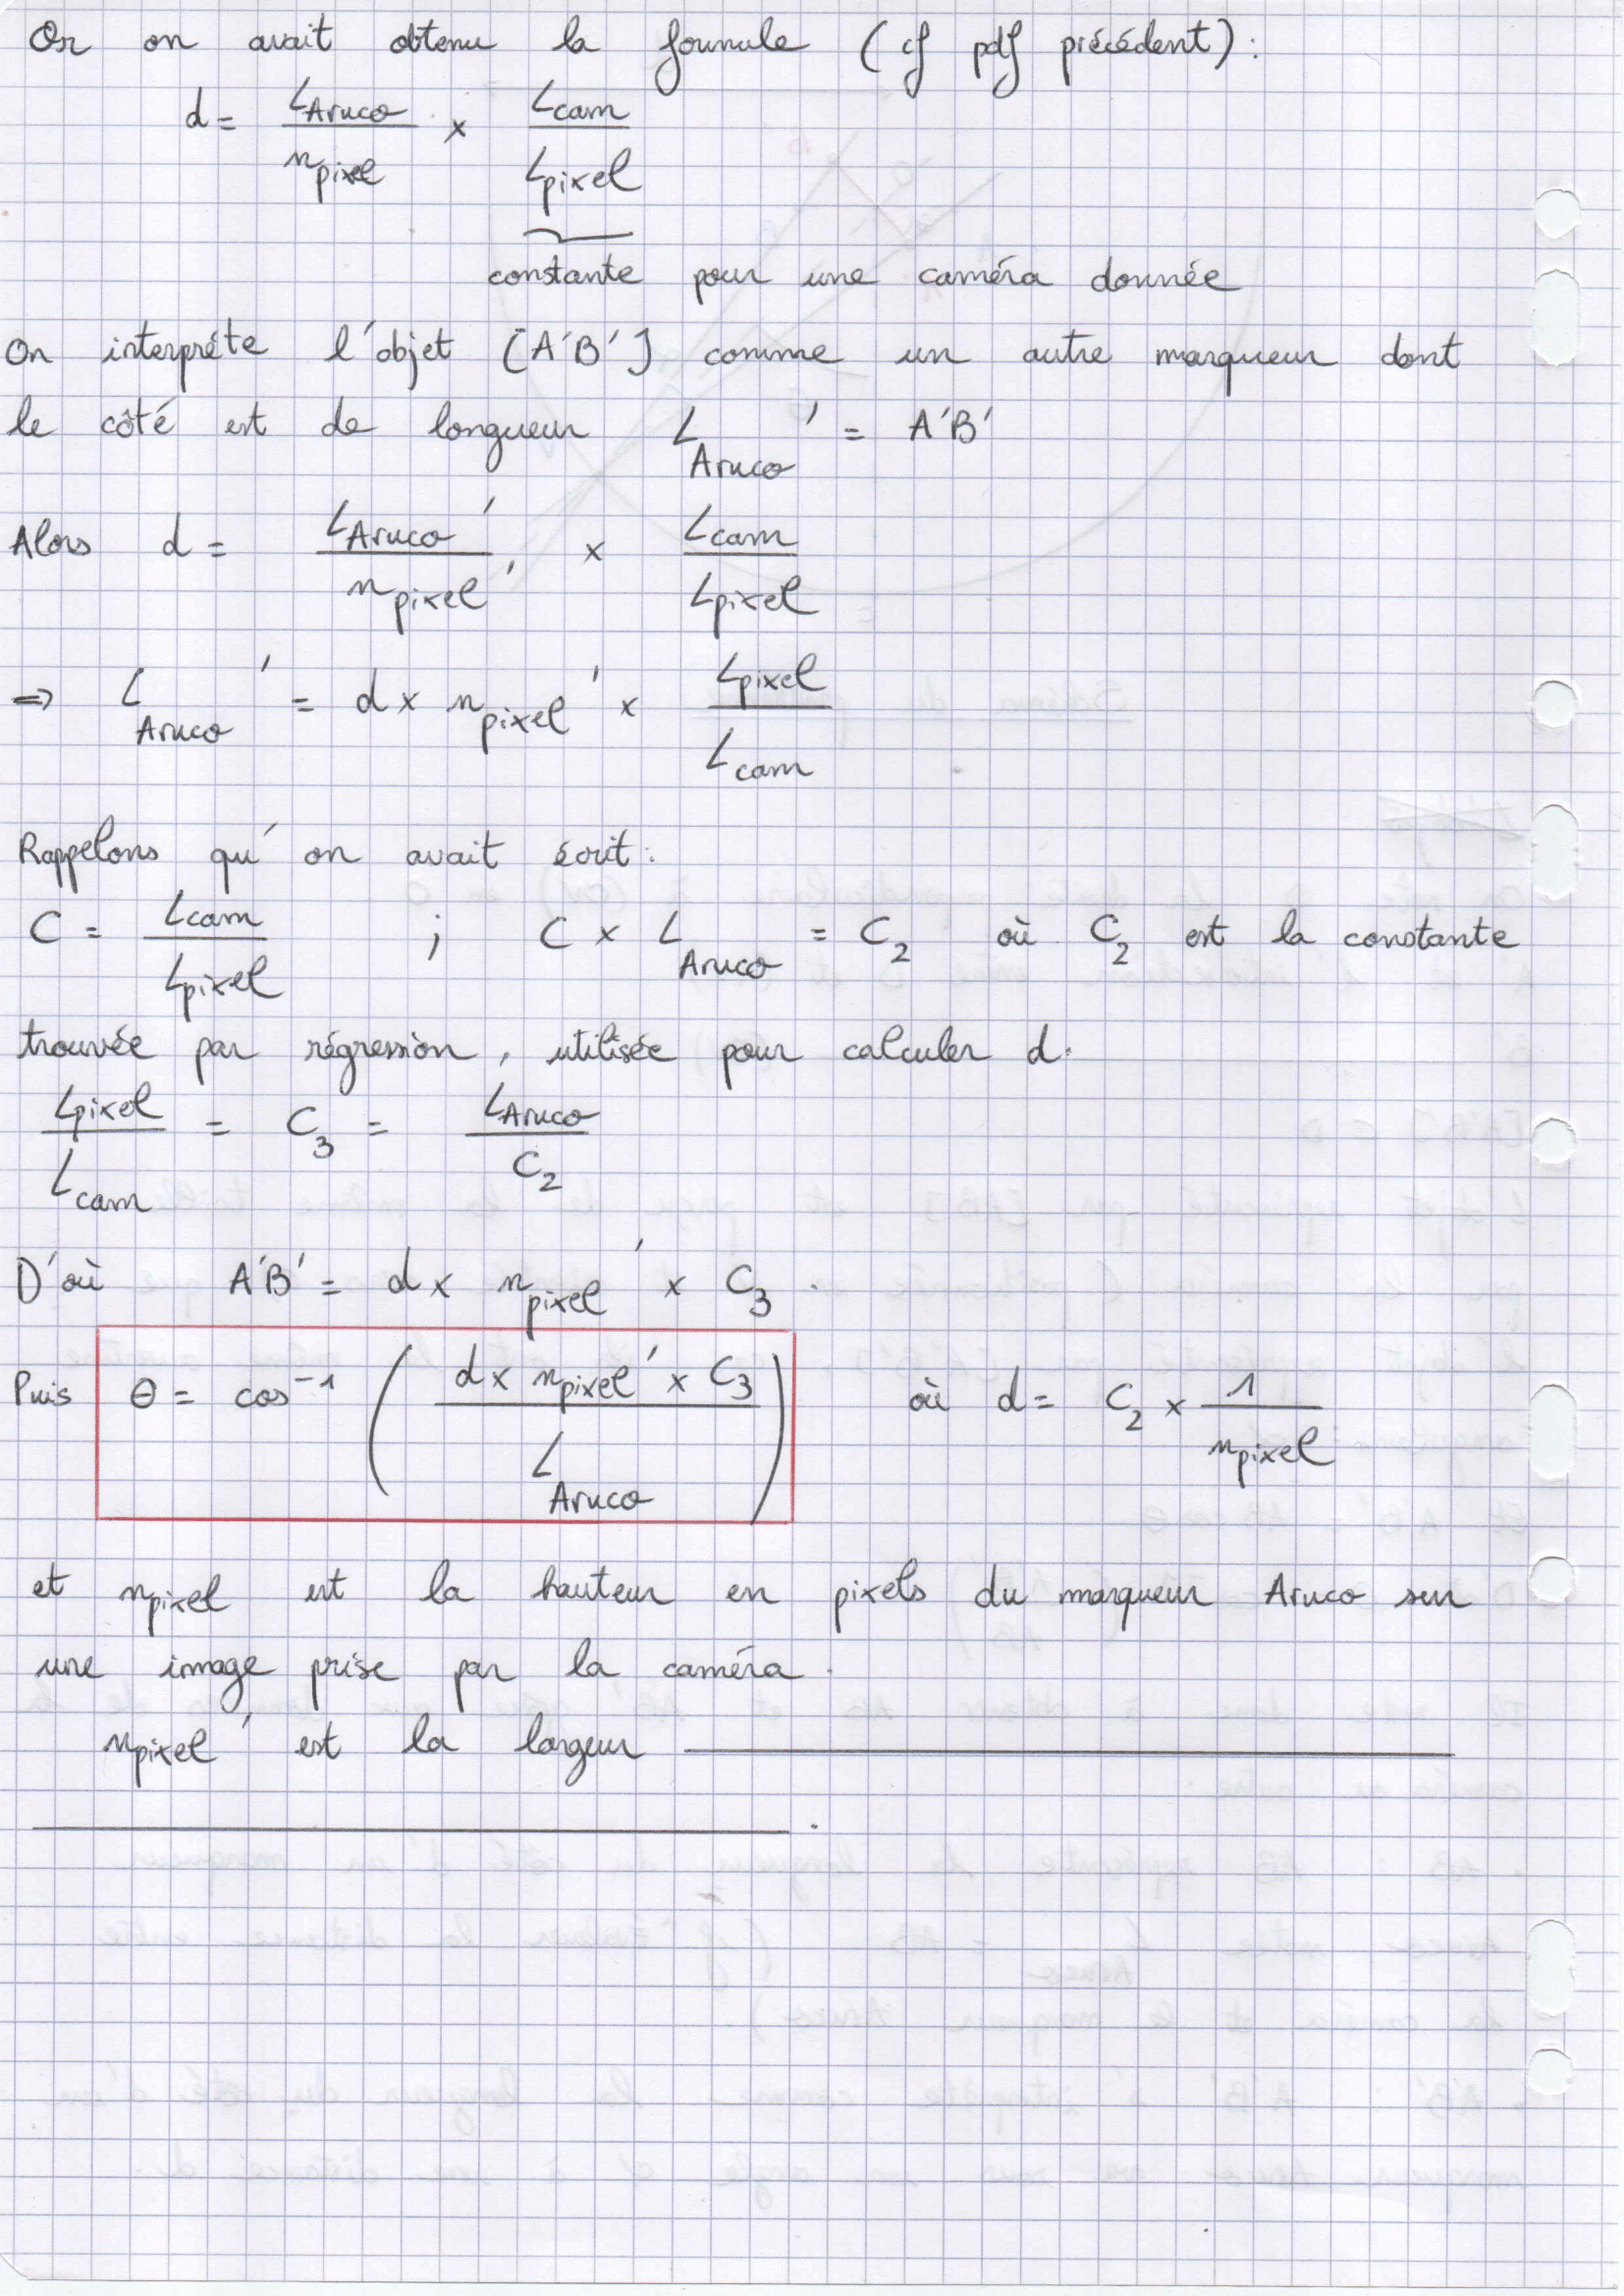 Or on avait obtenu la formule (cf pdf précédent) :
d = L_Aruco / n_pixel × L_cam / L_pixel
constante pour une caméra donnée
On interprète l'objet [A'B'] comme un autre marqueur dont
le côté est de longueur L_Aruco' = A'B'
Alors d = L_Aruco' / n_pixel' × L_cam / L_pixel
=> L_Aruco' = d × n_pixel' × L_pixel / L_cam
Rappelons qu'on avait écrit :
C = L_cam / L_pixel ; C × L_Aruco = C_2 où C_2 est la constante
trouvée par régression, utilisée pour calculer d.
L_pixel / L_cam = C_3 = L_Aruco / C_2
D'où A'B' = d × n_pixel' × C_3 .
Puis θ = cos^-1 ( d × n_pixel' × C_3 / L_Aruco ) où d = C_2 × 1 / n_pixel
et n_pixel est la hauteur en pixels du marqueur Aruco sur
une image prise par la caméra.
n_pixel' est la largeur ————
———— .